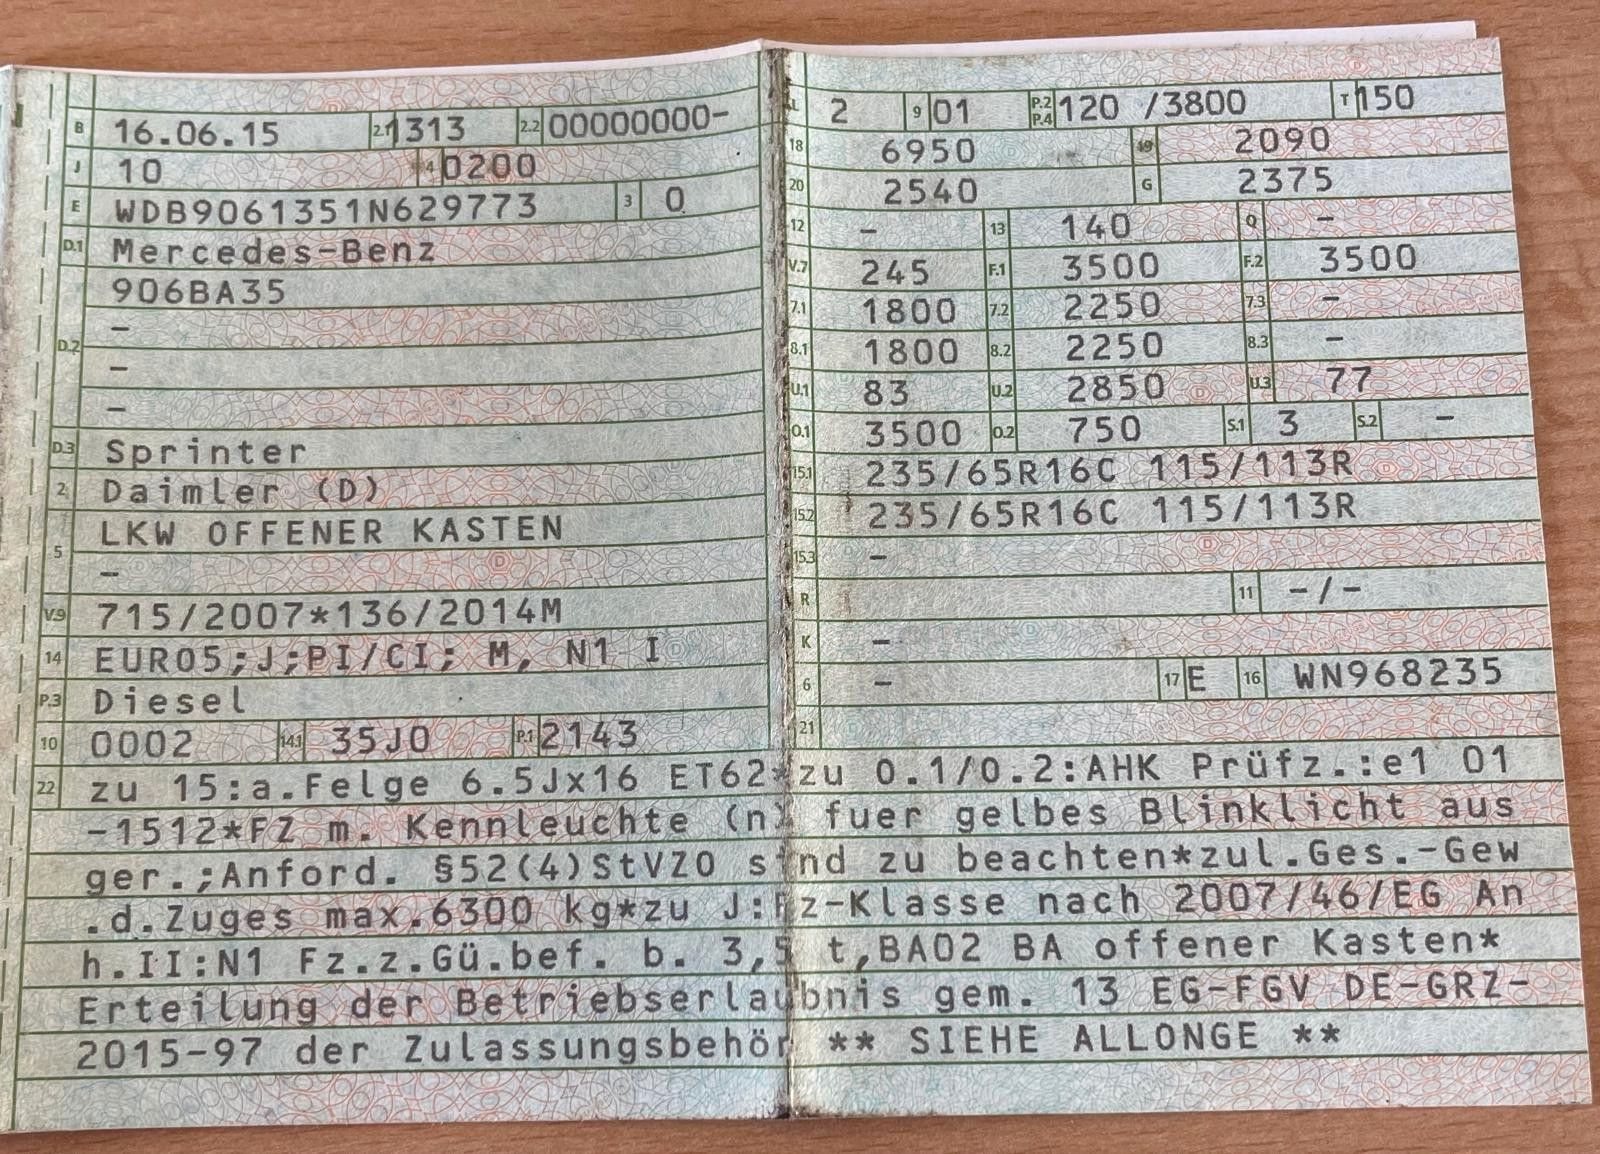 B 16.06.15 2.1 1313 2.2 00000000-
J 10 4 0200
E WDB9061351N629773 3 0
D.1 Mercedes-Benz
906BA35
-
D.2
-
-
D.3 Sprinter
2 Daimler (D)
LKW OFFENER KASTEN
5
-
V.9 715/2007*136/2014M
14 EURO5;J;PI/CI; M, N1 I
P.3 Diesel
10 0002 14.1 35J0 P.1 2143
L 2 9 01 P.2 P.4 120 /3800 T 150
18 6950 19 2090
20 2540 G 2375
12 - 13 140 Q -
V.7 245 F.1 3500 F.2 3500
7.1 1800 7.2 2250 7.3 -
8.1 1800 8.2 2250 8.3 -
U.1 83 U.2 2850 U.3 77
O.1 3500 O.2 750 S.1 3 S.2 -
15.1 235/65R16C 115/113R
15.2 235/65R16C 115/113R
15.3 -
R 11 -/-
K -
6 - 17 E 16 WN968235
21
22 zu 15:a.Felge 6.5Jx16 ET62*zu O.1/O.2:AHK Prüfz.:e1 01
-1512*FZ m. Kennleuchte (n) fuer gelbes Blinklicht aus
ger.;Anford. §52(4)StVZO sind zu beachten*zul.Ges.-Gew
.d.Zuges max.6300 kg*zu J:Fz-Klasse nach 2007/46/EG An
h.II:N1 Fz.z.Gü.bef. b. 3,5 t,BA02 BA offener Kasten*
Erteilung der Betriebserlaubnis gem. 13 EG-FGV DE-GRZ-
2015-97 der Zulassungsbehör ** SIEHE ALLONGE **